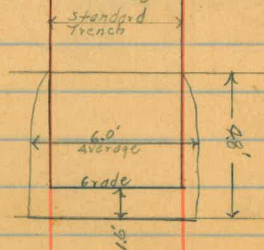 Standard
Trench
6.0'
Average
4.8'
Grade
1.6'